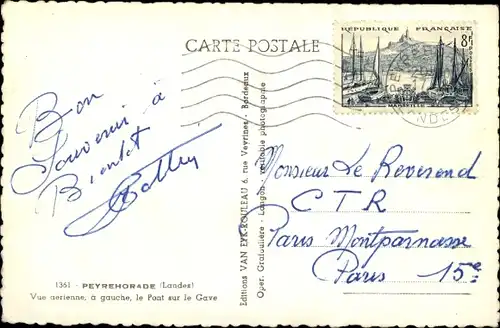 CARTE POSTALE
REPUBLIQUE FRANÇAISE
8F
MARSEILLE
LANDES
Bon
Souvenir à
Bientot
Monsieur Le Reverend
C T R
Paris Montparnasse
Paris 15e
Editions VAN EYK-ROULEAU 6, rue Veyrines - Bordeaux
Oper. Gratoulière - Langon - Véritable photographique
1361 - PEYREHORADE (Landes)
Vue aerienne, à gauche, le Pont sur le Gave